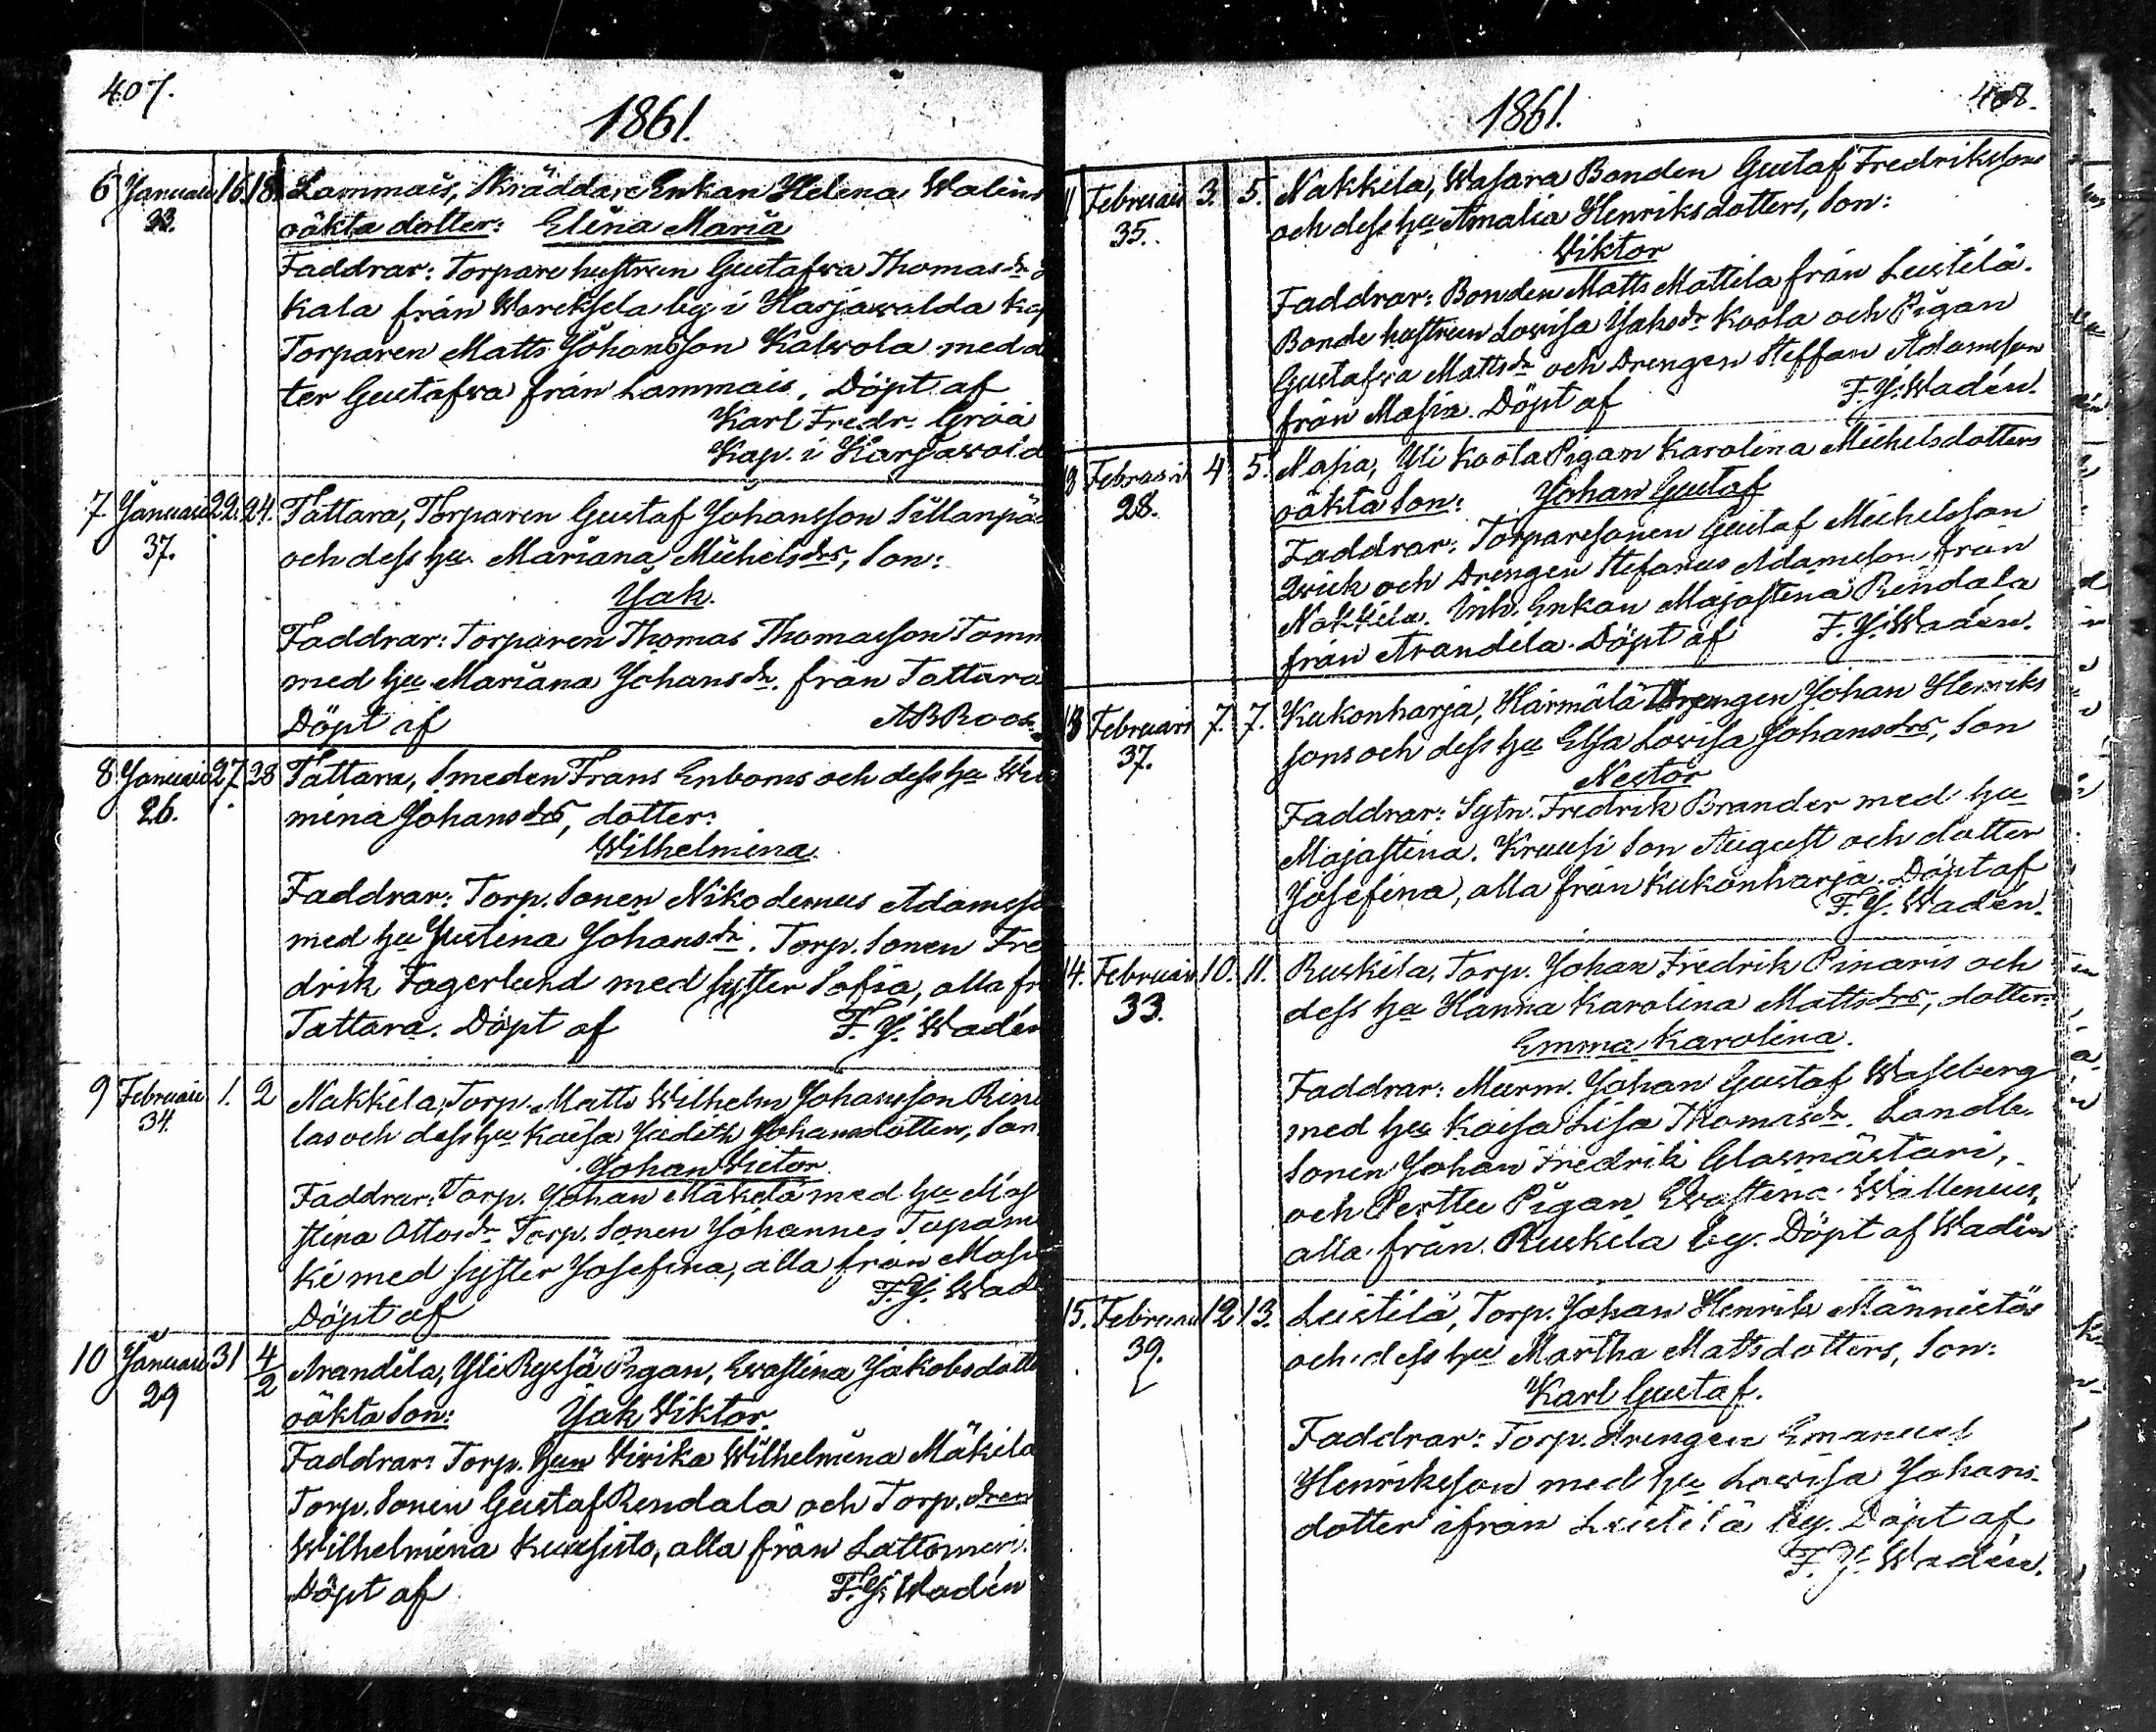 407.
1861.
6 Januari 16. 18. Lammais, Skräddare Enkan Helena Walins
33. oäkta dotter: Elina Maria
Faddrar: Torpare hustrun Gustafva Thomasdr
kala från Wareksela by i Harjawalda Kap
Torparen Matts Johansson Kalvola med d
ter Gustafva från Lammais. Döpt af
Karl Fredr. Gröå
Kap. i Harjawald
7. Januari 22. 24. Tattara, Torparen Gustaf Johansson Sillanpää
37. och dess hu Mariana Michelsdrs, Son:
Jak.
Faddrar: Torparen Thomas Thomasson Tomm
med hu Mariana Johansdr. från Tattara
Döpt af A B Roos
8. Januari 27. 28 Tattara, Smeden Frans Enboms och dess hu Wil
26. mina Johansdrs, dotter:
Wilhelmina.
Faddrar: Torp. Sonen Nikodemus Adamsso
med hu Justina Johansdr. Torp. Sonen Fre
drik Fagerlund med syster Sofia, alla fr
Tattara. Döpt af F. J. Wadén
9 Februari 1. 2 Nakkila, Torp. Matts Wilhelm Johansson Rini
34. las och dess hu Kaisa Judith Johansdotters, Son
Johan Victor
Faddrar: Torp. Johan Mäkelä med hu Maj
stina Ottosdr Torp. Sonen Johannes Tupam
ki med syster Josefina, alla från Masi
Döpt af F. J. Wad
10 Januari 31 4/2 Arandila, Yli Ryssä Pigan, Evastina Jakobsdott
29 oäkta Son: Jak Viktor.
Faddrar: Torp. hun Virika Wilhelmina Mäkilä
Torp. Sonen Gustaf Rendala och Torp. dren
Wilhelmina Kuusisto, alla från Lattomeri.
Döpt af F. J. Wadén
1861.
408.
11 Februari 3. 5. Nakkila, Wasara Bonden Gustaf Fredrikssons
35. och dess hu Amalia Henriksdotters, Son:
Viktor
Faddrar: Bonden Matts Mattila från Leistilä.
Bonde hustrun Lovisa Jaksdr Koola och Pigan
Gustafva Mattsdr och Drengen Steffan Adamsson
från Masia. Döpt af F. J. Wadén.
Februari 4 5. Masia, Yli Koola Pigan Karolina Michelsdotters
28. oäkta Son: Johan Gustaf
Faddrar: Torparesonen Gustaf Michelsson
Qvick och Drengen Stefanus Adamsson från
Nakkila. Inh. Enkan Majastina Rendala
från Arandila. Döpt af F. J. Wadén.
13 Februari 7. 7. Kukonharja, Härmälä Drengen Johan Henriks
37. sons och dess hu Elsa Lovisa Johansdrs, Son
Nestor
Faddrar: Sytn. Fredrik Brander med hu
Majastina. Kruusi Son August och dotter
Josefina, alla från Kukonharja. Döpt af
F. J. Wadén.
14. Februari 10. 11. Ruskila, Torp. Johan Fredrik Pinaris och
33. dess hu Hanna Karolina Mattsdrs, dotter:
Emma Karolina.
Faddrar: Murm. Johan Gustaf Waseberg
med hu Kaisa Lisa Thomasdr. Landb.
Sonen Johan Fredrik Glasmästari,
och Perttu Pigan Evastina Wallenius,
alla från Ruskila by. Döpt af Wadén
15. Februari 12 13. Leistilä, Torp. Johan Henrik Männistös
39. och dess hu Martha Mattsdotters, Son:
Karl Gustaf.
Faddrar: Torp. drengen Emanuel
Henriksson med hu Lovisa Johans-
dotter ifrån Leistilä by. Döpt af
F. J. Wadén.